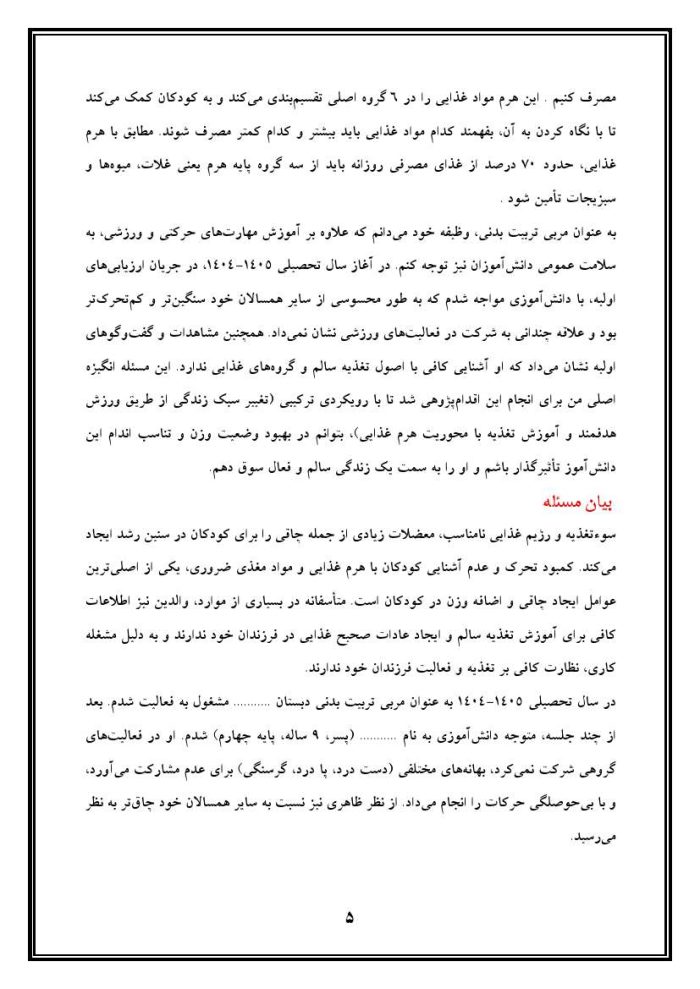 مصرف کنیم . این هرم مواد غذایی را در ٦ گروه اصلی تقسیم‌بندی می‌کند و به کودکان کمک می‌کند
تا با نگاه کردن به آن، بفهمند کدام مواد غذایی باید بیشتر و کدام کمتر مصرف شوند. مطابق با هرم
غذایی، حدود ۷۰ درصد از غذای مصرفی روزانه باید از سه گروه پایه هرم یعنی غلات، میوه‌ها و
سبزیجات تأمین شود .
به عنوان مربی تربیت بدنی، وظیفه خود می‌دانم که علاوه بر آموزش مهارت‌های حرکتی و ورزشی، به
سلامت عمومی دانش‌آموزان نیز توجه کنم. در آغاز سال تحصیلی ١٤٠٥-١٤٠٤، در جریان ارزیابی‌های
اولیه، با دانش‌آموزی مواجه شدم که به طور محسوسی از سایر همسالان خود سنگین‌تر و کم‌تحرک‌تر
بود و علاقه چندانی به شرکت در فعالیت‌های ورزشی نشان نمی‌داد. همچنین مشاهدات و گفت‌وگوهای
اولیه نشان می‌داد که او آشنایی کافی با اصول تغذیه سالم و گروه‌های غذایی ندارد. این مسئله انگیزه
اصلی من برای انجام این اقدام‌پژوهی شد تا با رویکردی ترکیبی (تغییر سبک زندگی از طریق ورزش
هدفمند و آموزش تغذیه با محوریت هرم غذایی)، بتوانم در بهبود وضعیت وزن و تناسب اندام این
دانش‌آموز تأثیرگذار باشم و او را به سمت یک زندگی سالم و فعال سوق دهم.
بیان مسئله
سوءتغذیه و رژیم غذایی نامناسب، معضلات زیادی از جمله چاقی را برای کودکان در سنین رشد ایجاد
می‌کند. کمبود تحرک و عدم آشنایی کودکان با هرم غذایی و مواد مغذی ضروری، یکی از اصلی‌ترین
عوامل ایجاد چاقی و اضافه وزن در کودکان است. متأسفانه در بسیاری از موارد، والدین نیز اطلاعات
کافی برای آموزش تغذیه سالم و ایجاد عادات صحیح غذایی در فرزندان خود ندارند و به دلیل مشغله
کاری، نظارت کافی بر تغذیه و فعالیت فرزندان خود ندارند.
در سال تحصیلی ١٤٠٥-١٤٠٤ به عنوان مربی تربیت بدنی دبستان ........... مشغول به فعالیت شدم. بعد
از چند جلسه، متوجه دانش‌آموزی به نام ........... (پسر، ۹ ساله، پایه چهارم) شدم. او در فعالیت‌های
گروهی شرکت نمی‌کرد، بهانه‌های مختلفی (دست درد، پا درد، گرسنگی) برای عدم مشارکت می‌آورد،
و با بی‌حوصلگی حرکات را انجام می‌داد. از نظر ظاهری نیز نسبت به سایر همسالان خود چاق‌تر به نظر
می‌رسید.
۵